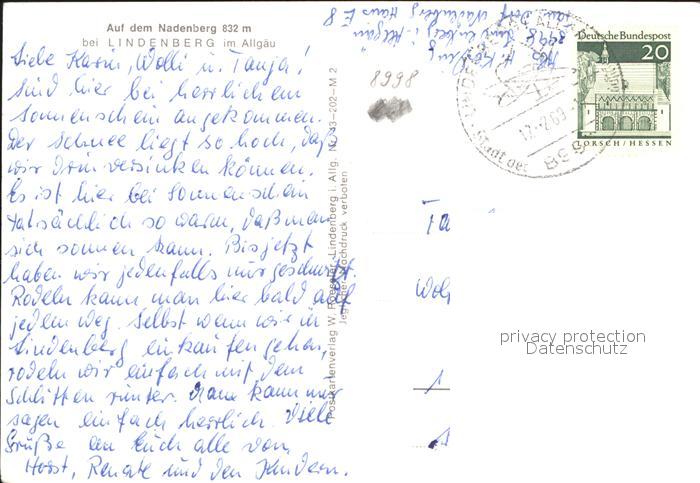 Auf dem Nadenberg 832 m
bei LINDENBERG im Allgäu
Liebe Karin, Wolli u. Tanja!
Sind hier bei herrlichem
Sonnenschein angekommen.
Der Schnee liegt so hoch, daß
wir drin versinken können.
Es ist hier bei Sonnenschein
tatsächlich so warm, daß man
sich sonnen kann. Bis jetzt
haben wir jedenfalls nur geschwitzt.
Rodeln kann man hier bald auf
jedem Weg. Selbst wenn wir in
Lindenberg einkaufen gehen,
rodeln wir einfach mit dem
Schlitten runter. Man kann nur
sagen einfach herrlich. Viele
Grüße an Euch alle von
Horst, Renate und den Kindern.
Postkartenverlag W. Lindenberg i. Allg. 202-M. 2
Hochdruck verboten
8998
Nadenberg Haus E 8
8998
Stadt der
899
Deutsche Bundespost
20
LORSCH/HESSEN
Ta
Wol
1
privacy protection
Datenschutz